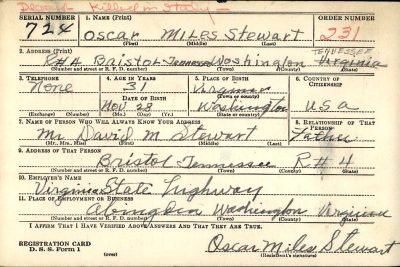 Deceased Killed in Italy
SERIAL NUMBER 1. NAME (Print) ORDER NUMBER
724 Oscar Miles Stewart 231
(First) (Middle) (Last)
2. ADDRESS (Print) TENNESSEE
R#4 Bristol Tennessee Washington Virginia
(Number and street or R. F. D. number) (Town) (County) (State)
3. TELEPHONE 4. AGE IN YEARS 5. PLACE OF BIRTH 6. COUNTRY OF CITIZENSHIP
None 31 Virginia
DATE OF BIRTH (Town or county)
Nov 28 Washington USA
(Exchange) (Number) (Mo.) (Day) (Yr.) (State or country)
7. NAME OF PERSON WHO WILL ALWAYS KNOW YOUR ADDRESS 8. RELATIONSHIP OF THAT PERSON
Mr. David M Stewart Father
(Mr., Mrs., Miss) (First) (Middle) (Last)
9. ADDRESS OF THAT PERSON
Bristol Tennessee R#4
(Number and street or R. F. D. number) (Town) (County) (State)
10. EMPLOYER'S NAME
Virginia State Highway
11. PLACE OF EMPLOYMENT OR BUSINESS
Abingdon Washington Virginia
(Number and street or R. F. D. number) (Town) (County) (State)
I AFFIRM THAT I HAVE VERIFIED ABOVE ANSWERS AND THAT THEY ARE TRUE.
REGISTRATION CARD
D. S. S. Form 1 (over) Oscar Miles Stewart
(Registrant's signature)